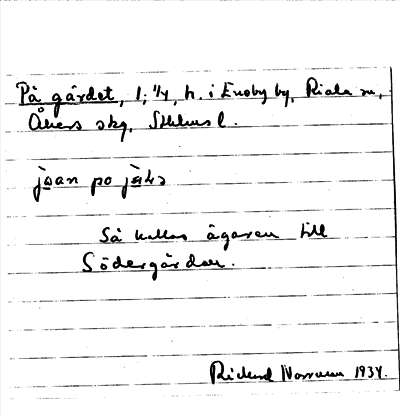 På gärdet, 1; 1/4, h. i Ensby by, Riala sn,
Åkers skg, Sthlms l.
Så kallas ägaren till
Södergården.
Rickard Norrman 1934.